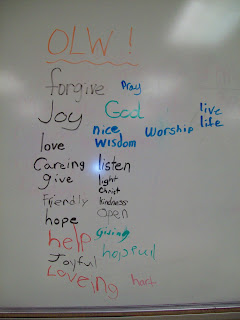 OLW!
forgive pray
Joy God live
life
nice Worship
love wisdom
Careing listen
give light
Christ
Friendly kindness
hope Open
help Giving
Joyful hopeful
Loveing hart